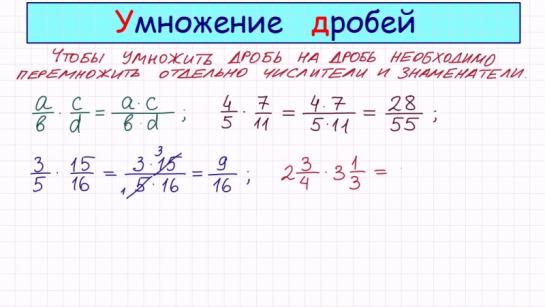 Умножение дробей
Чтобы умножить дробь на дробь необходимо
перемножить отдельно числители и знаменатели.
a/b · c/d = a·c/b·d ; 4/5 · 7/11 = 4·7/5·11 = 28/55 ;
3/5 · 15/16 = 3·15 3/1 5·16 = 9/16 ; 2 3/4 · 3 1/3 =